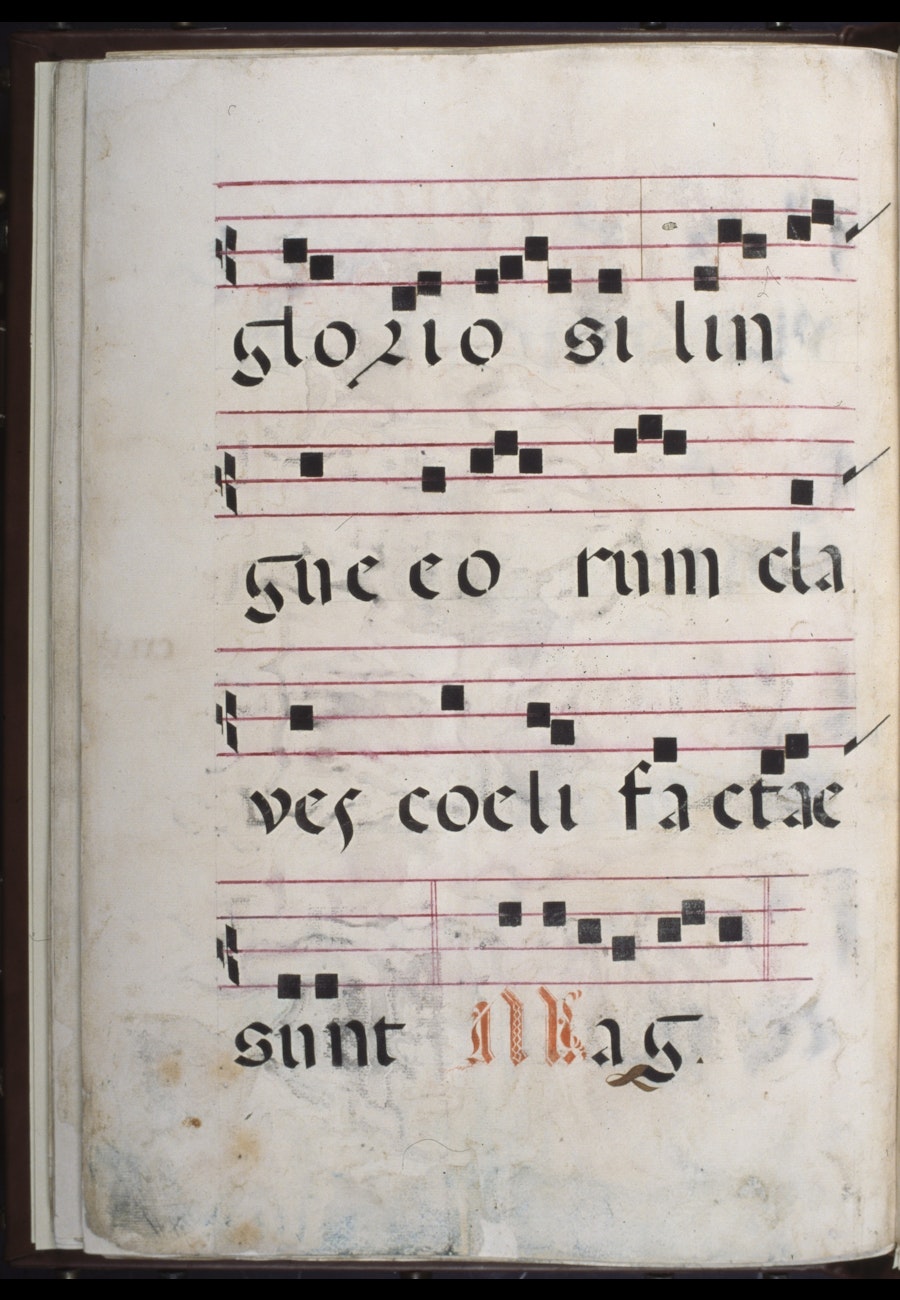 glorio si lin
gue eo rum cla
ves coeli factae
sunt Mag.